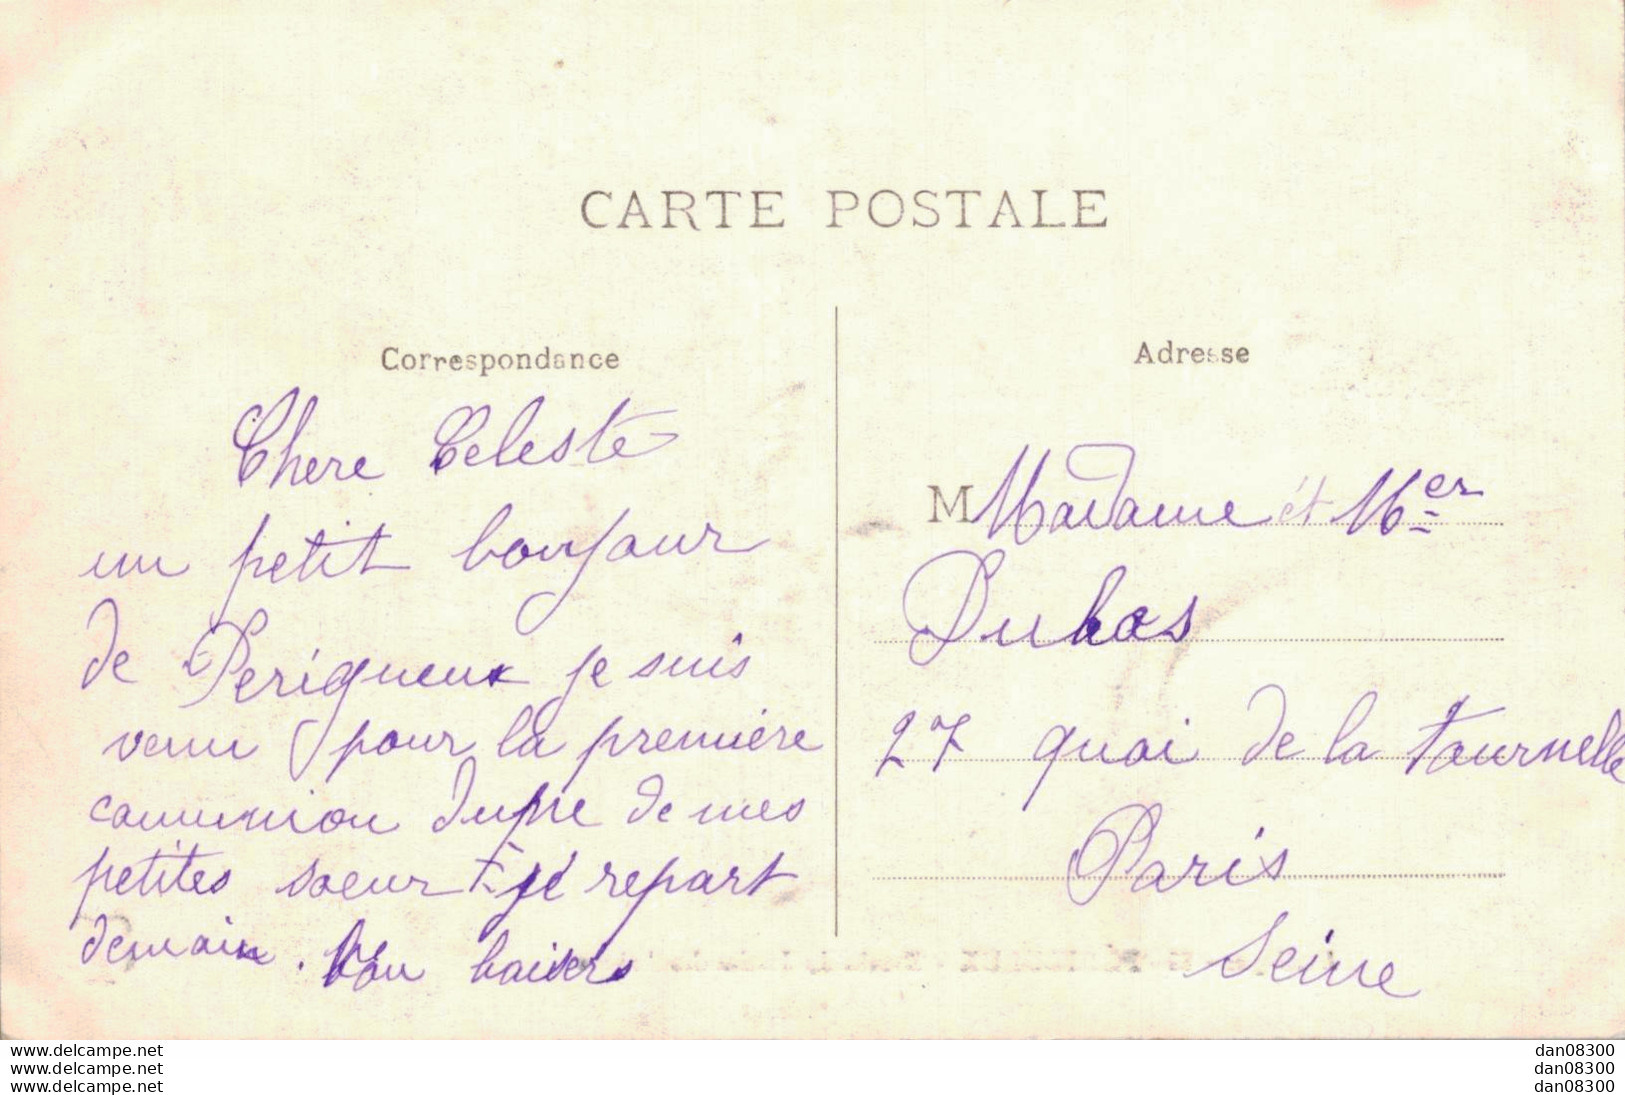 CARTE POSTALE
Correspondance
Chere Celeste
un petit bonjour
de Perigueux je suis
venu pour la première
communion dupne de mes
petites soeur je repart
demain. bon baisers
Adresse
M Madame et Mer
Dubos
27 quai de la tournelle
Paris
Seine
www.delcampe.net
www.delcampe.net
www.delcampe.net
dan08300
dan08300
dan08300